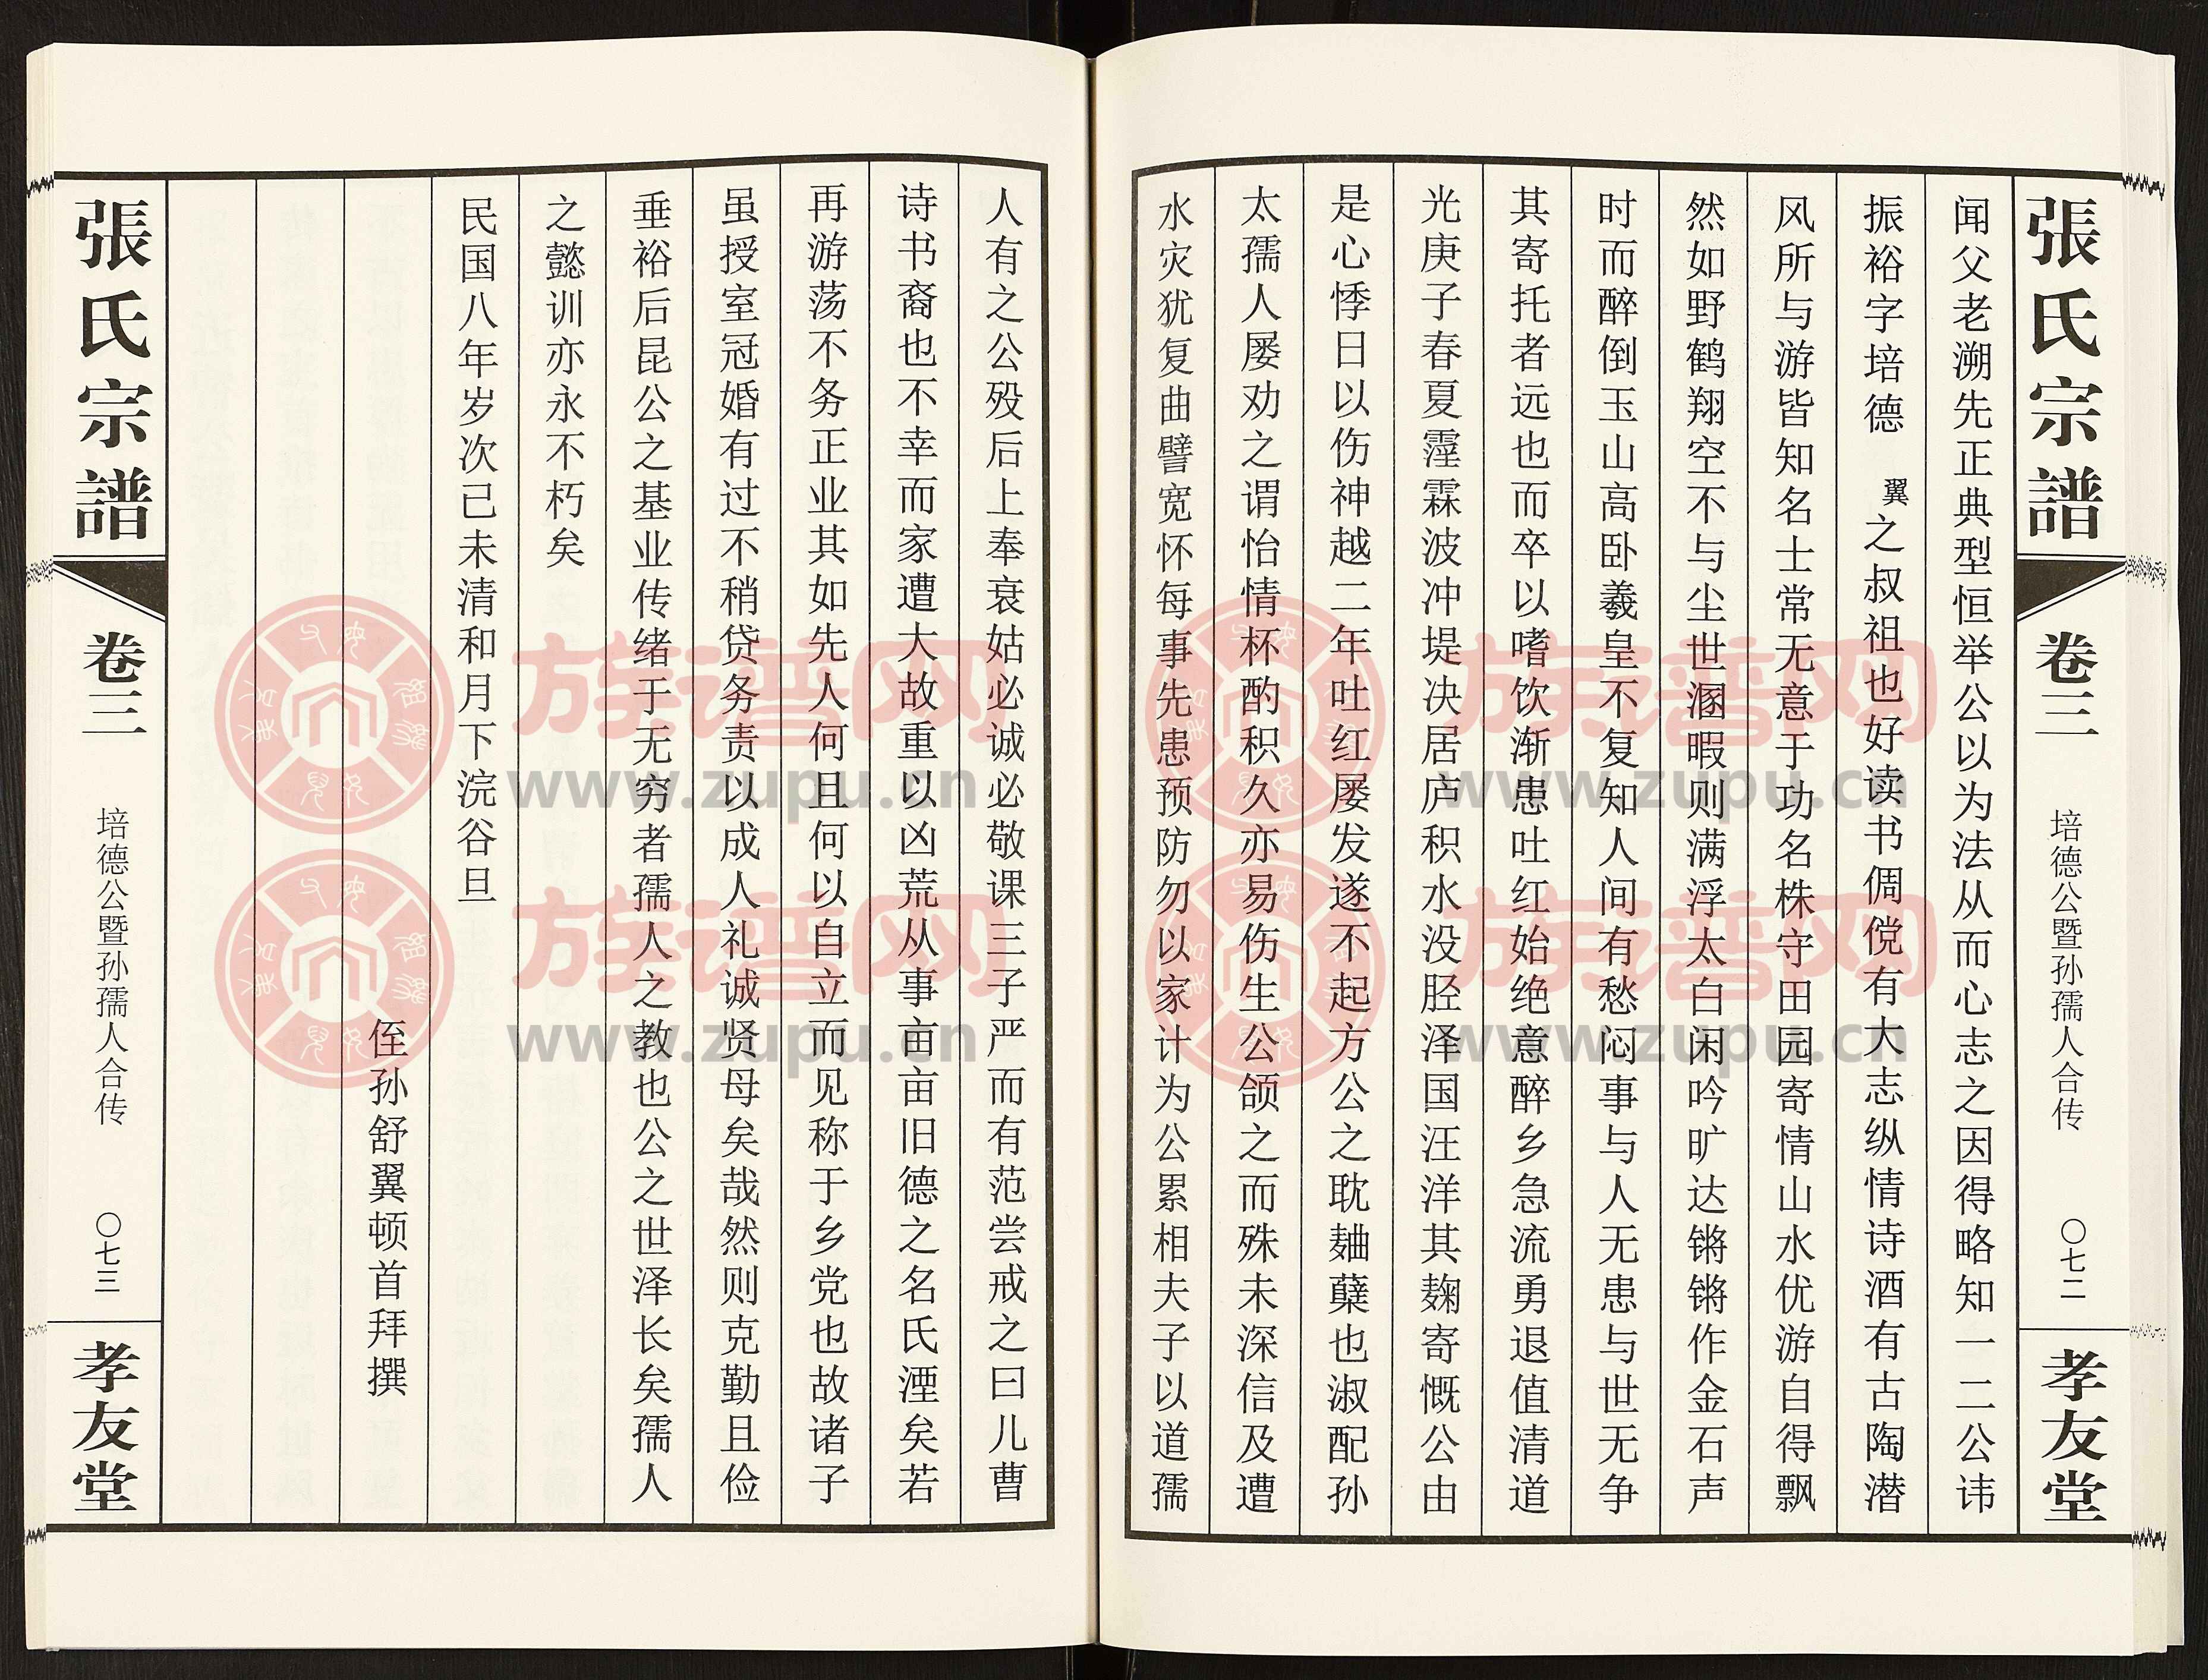 張氏宗譜
卷三
培德公暨孙孺人合传
〇七二
孝友堂
闻父老溯先正典型恒举公以为法从而心志之因得略知一二公讳
振裕字培德 翼之叔祖也好读书倜傥有大志纵情诗酒有古陶潜
风所与游皆知名士常无意于功名株守田园寄情山水优游自得飘
然如野鹤翔空不与尘世溷暇则满浮太白闲吟旷达锵锵作金石声
时而醉倒玉山高卧羲皇不复知人间有愁闷事与人无患与世无争
其寄托者远也而卒以嗜饮渐患吐红始绝意醉乡急流勇退值清道
光庚子春夏霪霖波冲堤决居庐积水没胫泽国汪洋其麹寄慨公由
是心悸日以伤神越二年吐红屡发遂不起方公之耽麯蘖也淑配孙
太孺人屡劝之谓怡情杯酌积久亦易伤生公颌之而殊未深信及遭
水灾犹复曲譬宽怀每事先患预防勿以家计为公累相夫子以道孺
人有之公殁后上奉衰姑必诚必敬课三子严而有范尝戒之曰儿曹
诗书裔也不幸而家遭大故重以凶荒从事亩亩旧德之名氏湮矣若
再游荡不务正业其如先人何且何以自立而见称于乡党也故诸子
虽授室冠婚有过不稍贷务责以成人礼诚贤母矣哉然则克勤且俭
垂裕后昆公之基业传绪于无穷者孺人之教也公之世泽长矣孺人
之懿训亦永不朽矣
民国八年岁次己未清和月下浣谷旦
侄孙舒翼顿首拜撰
張氏宗譜
卷三
培德公暨孙孺人合传
〇七三
孝友堂
族谱网
www.zupu.cn
族谱网
www.zupu.cn
族谱网
www.zupu.cn
族谱网
www.zupu.cn